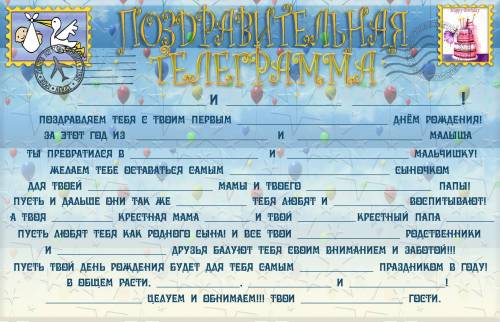 ПОЗДРАВИТЕЛЬНАЯ
ТЕЛЕГРАММА
____________________ И ____________________ ____________________!
ПОЗДРАВЛЯЕМ ТЕБЯ С ТВОИМ ПЕРВЫМ ____________________ ДНЁМ РОЖДЕНИЯ!
ЗА ЭТОТ ГОД ИЗ ____________________ И ____________________ МАЛЫША
ТЫ ПРЕВРАТИЛСЯ В ____________________ И ____________________ МАЛЬЧИШКУ!
ЖЕЛАЕМ ТЕБЕ ОСТАВАТЬСЯ САМЫМ ____________________ СЫНОЧКОМ
ДЛЯ ТВОЕЙ ____________________ МАМЫ И ТВОЕГО ____________________ ПАПЫ!
ПУСТЬ И ДАЛЬШЕ ОНИ ТАК ЖЕ ____________________ ТЕБЯ ЛЮБЯТ И ____________________ ВОСПИТЫВАЮТ!
А ТВОЯ ____________________ КРЕСТНАЯ МАМА ____________________ И ТВОЙ ____________________ КРЕСТНЫЙ ПАПА ____________________
ПУСТЬ ЛЮБЯТ ТЕБЯ КАК РОДНОГО СЫНА! И ВСЕ ТВОИ ____________________ РОДСТВЕННИКИ
И ____________________ ДРУЗЬЯ БАЛУЮТ ТЕБЯ СВОИМ ВНИМАНИЕМ И ЗАБОТОЙ!!!
ПУСТЬ ТВОЙ ДЕНЬ РОЖДЕНИЯ БУДЕТ ДЛЯ ТЕБЯ САМЫМ ____________________ ПРАЗДНИКОМ В ГОДУ!
В ОБЩЕМ РАСТИ, ____________________, ____________________ И ____________________!
____________________ ЦЕЛУЕМ И ОБНИМАЕМ!!! ТВОИ ____________________ ГОСТИ.